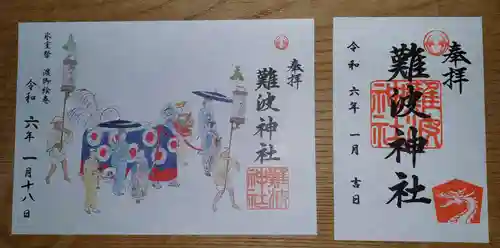 奉拝
難波神社
難波神社
氷室祭 渡御絵巻
令和 六年 一月十八日
奉拝
難波神社
難波神社
令和 六年 一月 吉日